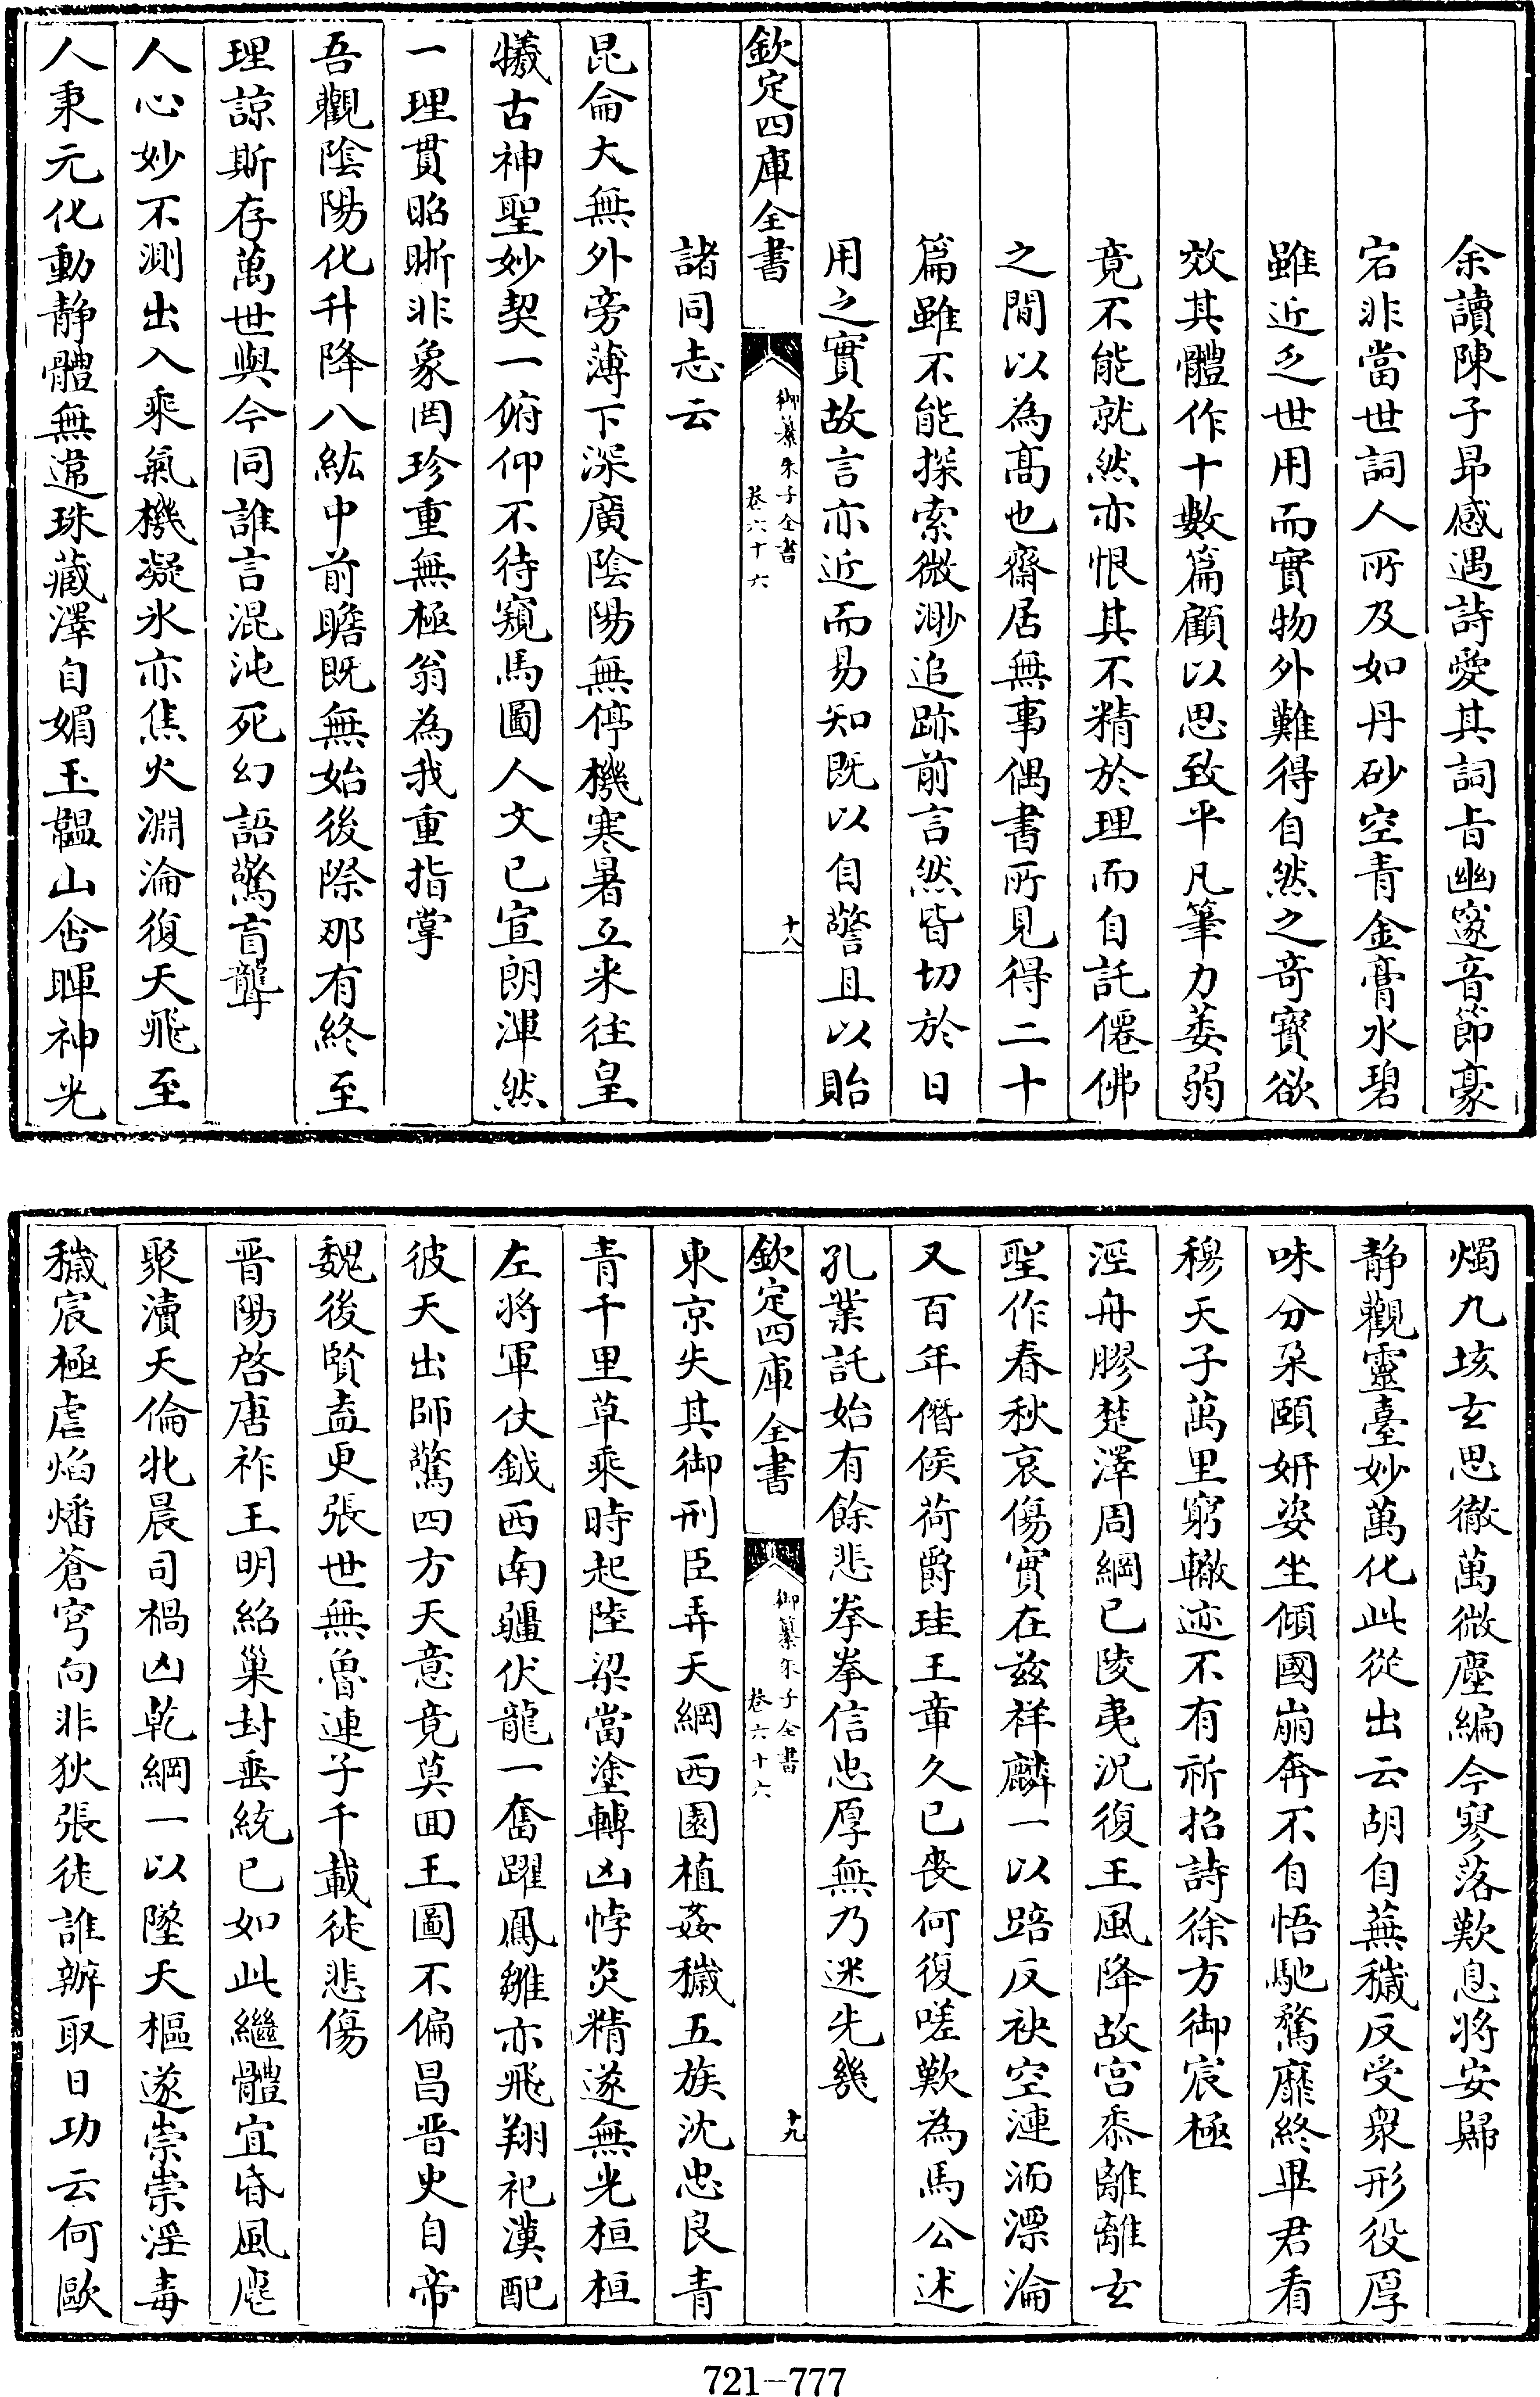 余讀陳子昻感遇詩愛其詞旨幽邃音節豪
宕非當世詞人所及如丹砂空青金膏水碧
雖近乏世用而實物外難得自然之奇寳欲
效其體作十數篇顧以思致平凡筆力萎弱
竟不能就然亦恨其不精於理而自託僊佛
之間以為髙也齋居無事偶書所見得二十
篇雖不能探索微渺追跡前言然皆切於日
用之實故言亦近而易知既以自警且以貽
諸同志云
欽定四庫全書
御纂朱子全書
卷六十六
十八
昆侖大無外旁薄下深廣陰陽無停機寒暑互来往皇
犧古神聖妙契一俯仰不待窺馬圖人文已宣朗渾然
一理貫昭晣非象罔珍重無極翁為我重指掌
吾觀陰陽化升降八紘中前瞻既無始後際那有終至
理諒斯存萬世與今同誰言混沌死幻語驚盲聾
人心妙不測出入乘氣機凝氷亦焦火淵淪復天飛至
人秉元化動静體無違珠藏澤自媚玉韞山含暉神光
燭九垓玄思徹萬微塵編今寥落歎息將安歸
静觀靈臺妙萬化此從出云胡自蕪穢反受衆形役厚
味分朶頤妍姿坐傾國崩奔不自悟馳騖靡終畢君看
穆天子萬里窮轍迹不有祈招詩徐方御宸極
涇舟膠楚澤周綱已陵夷況復王風降故宫黍離離玄
聖作春秋哀傷實在兹祥麟一以踣反袂空漣洏漂淪
又百年僭侯荷爵珪王章久已喪何復嗟歎為馬公述
孔業託始有餘悲拳拳信忠厚無乃迷先幾
欽定四庫全書
御纂朱子全書
卷六十六
十九
東京失其御刑臣弄天綱西園植姦穢五族沈忠良青
青千里草乘時起陸梁當塗轉凶悖炎精遂無光桓桓
左將軍仗鉞西南疆伏龍一奮躍鳳雛亦飛翔祀漢配
彼天出師驚四方天意竟莫回王圖不偏昌晋史自帝
魏後賢盍更張世無魯連子千載徒悲傷
晋陽啓唐祚王明紹巢封垂統已如此繼體宜昏風麀
聚瀆天倫牝晨司禍凶乾綱一以墜天樞遂崇崇淫毒
穢宸極虐焰燔蒼穹向非狄張徒誰辦取日功云何歐
721-777